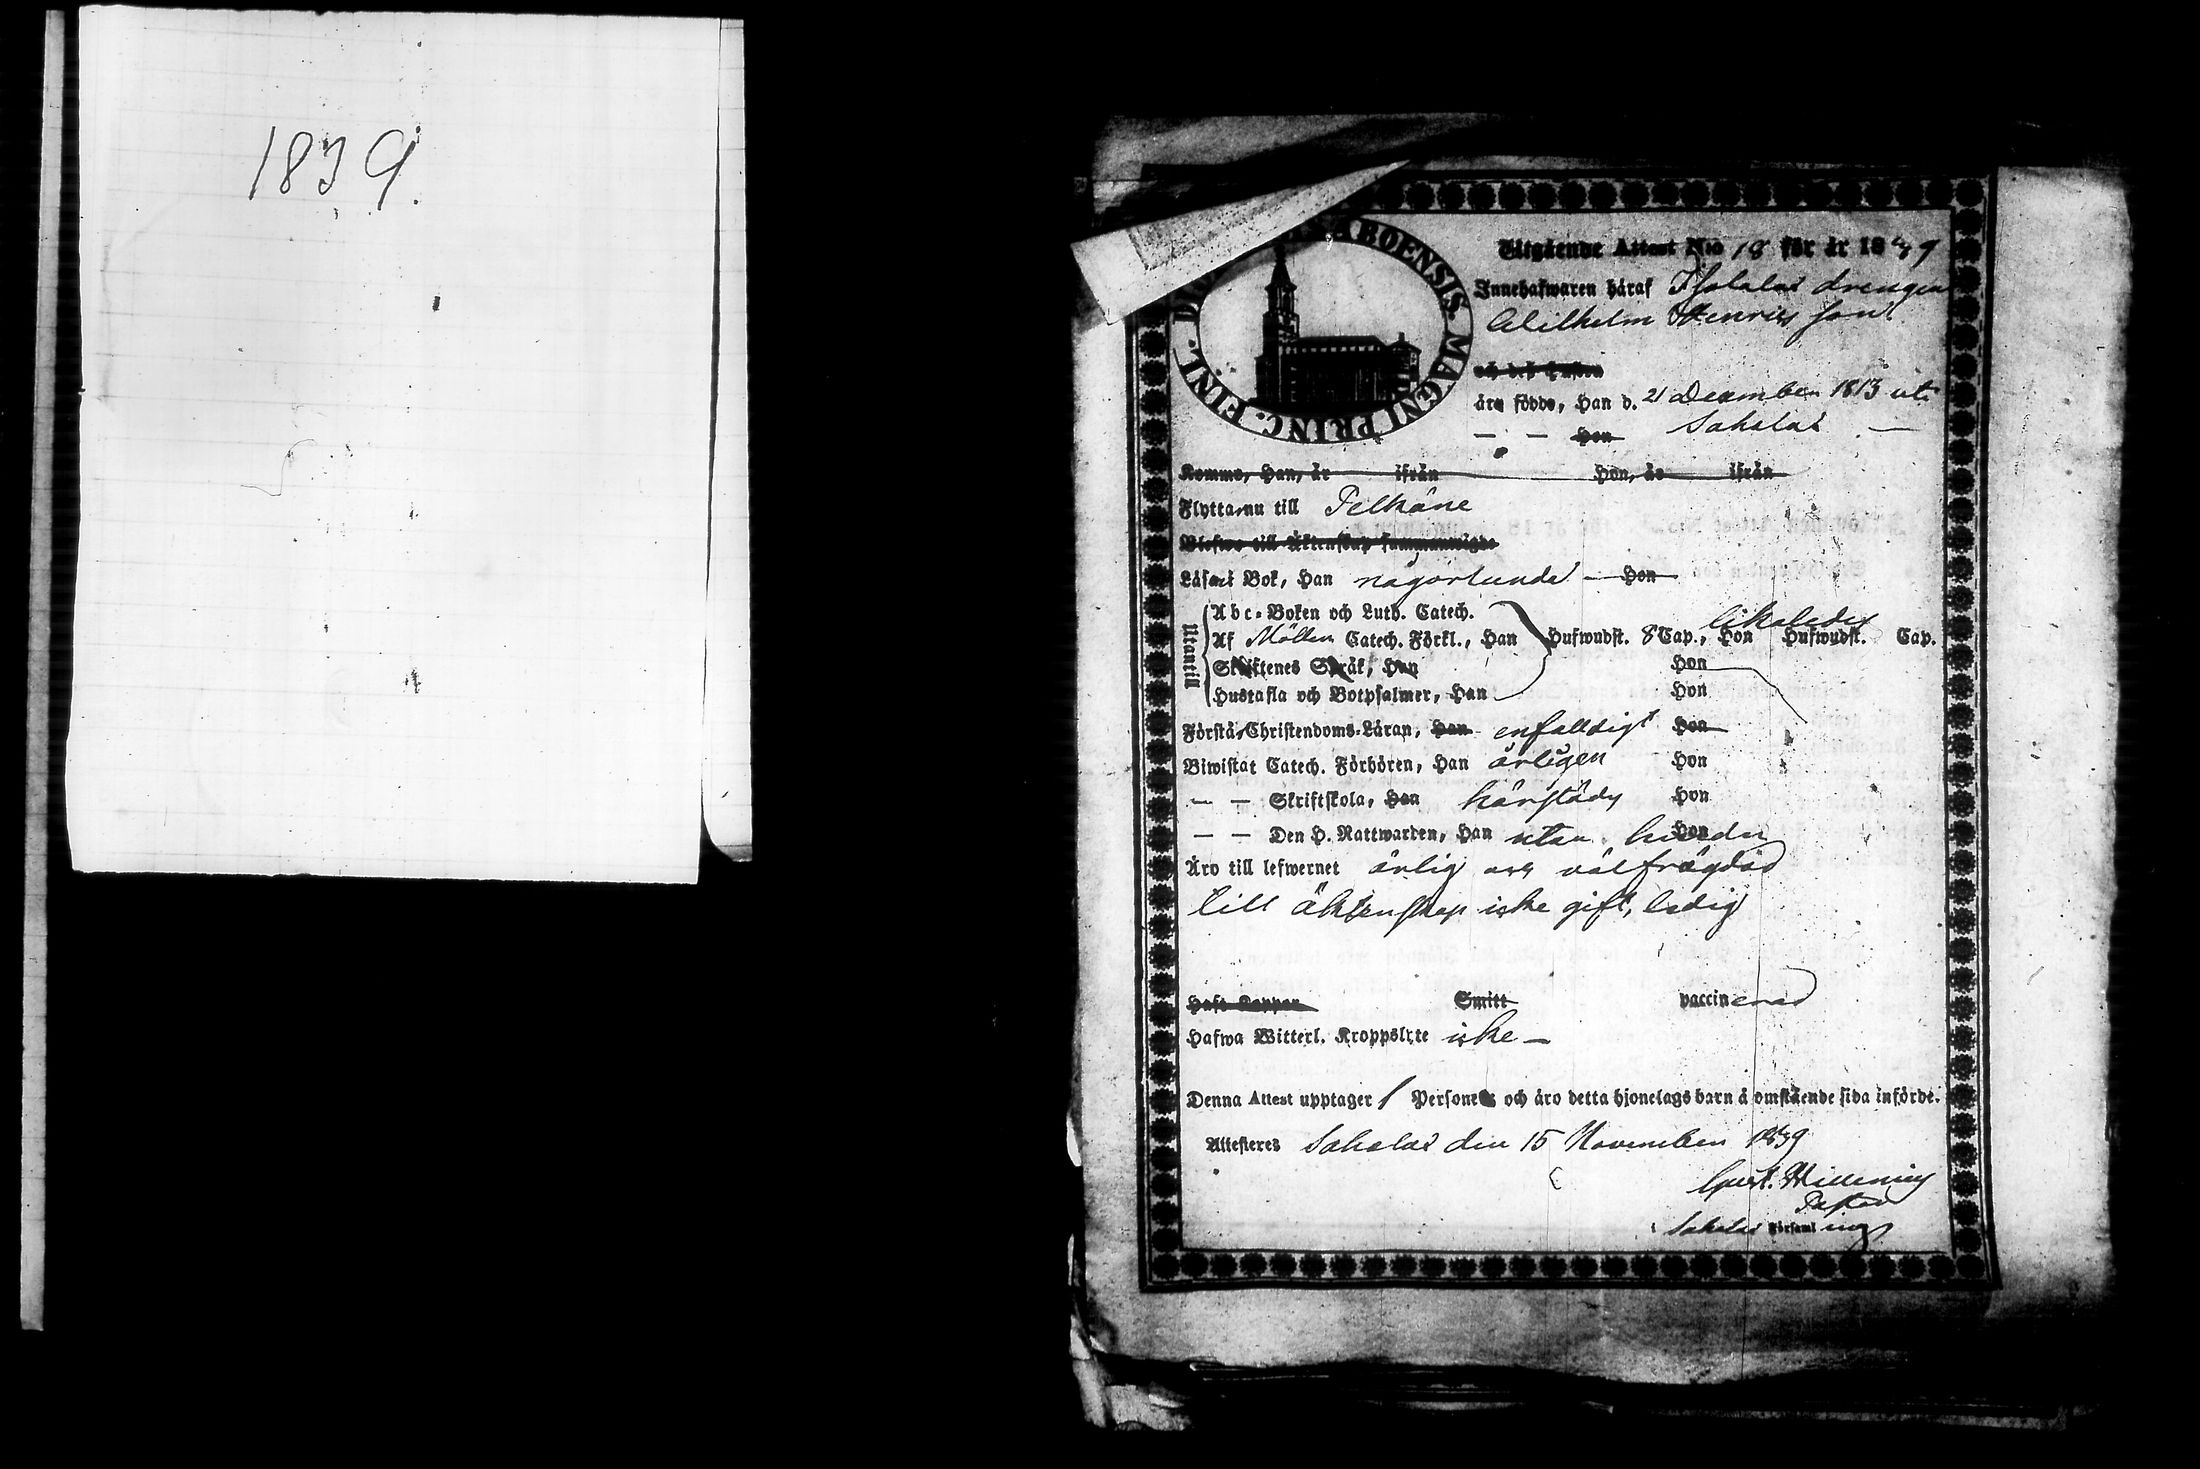 1839.
ABOENSIS. MAGNI PRINC. FINL.
Utgående Attest N:o 18 för år 1839
Innehafwaren häraf drengen
Wilhelm Henrics son
och deß Hustru
äro födde, Han d. 21 December 1813 uti
— — Hon Sahalax —
Kommo, Han, år ifrån Hon, år ifrån
Flytta nu till Pelkäne
Läsa i Bok, Han någorlunda — Hon
Utantill
Abc-Boken och Luth. Catech.
Af Möllers Catech. Förkl., Han Hufwudst. 8 Cap., Hon Hufwudst. Cap.
likaledes
Skriftenes Språk, Han Hon
Hustafla och Botpsalmer, Han Hon
Förstå Christendoms-Läran, Han enfaldigt Hon
Biwistat Catech. Förhören, Han årligen Hon
— — Skriftskola, Han härstädes Hon
— — Den H. Nattwarden, Han utan hinder Hon
Äro till lefwernet ärlig och välfrägdad
till äktenskap icke gift, ledig
Haft Koppor Smitt vaccinerad
Hafwa Witterl. Kroppslyte icke —
Denna Attest upptager 1 Personer och äro detta hjonelags barn å omstående sida införde.
Attesteras Sahalax den 15 November 1839
Gust.
Pastor
i Sahalax Församling